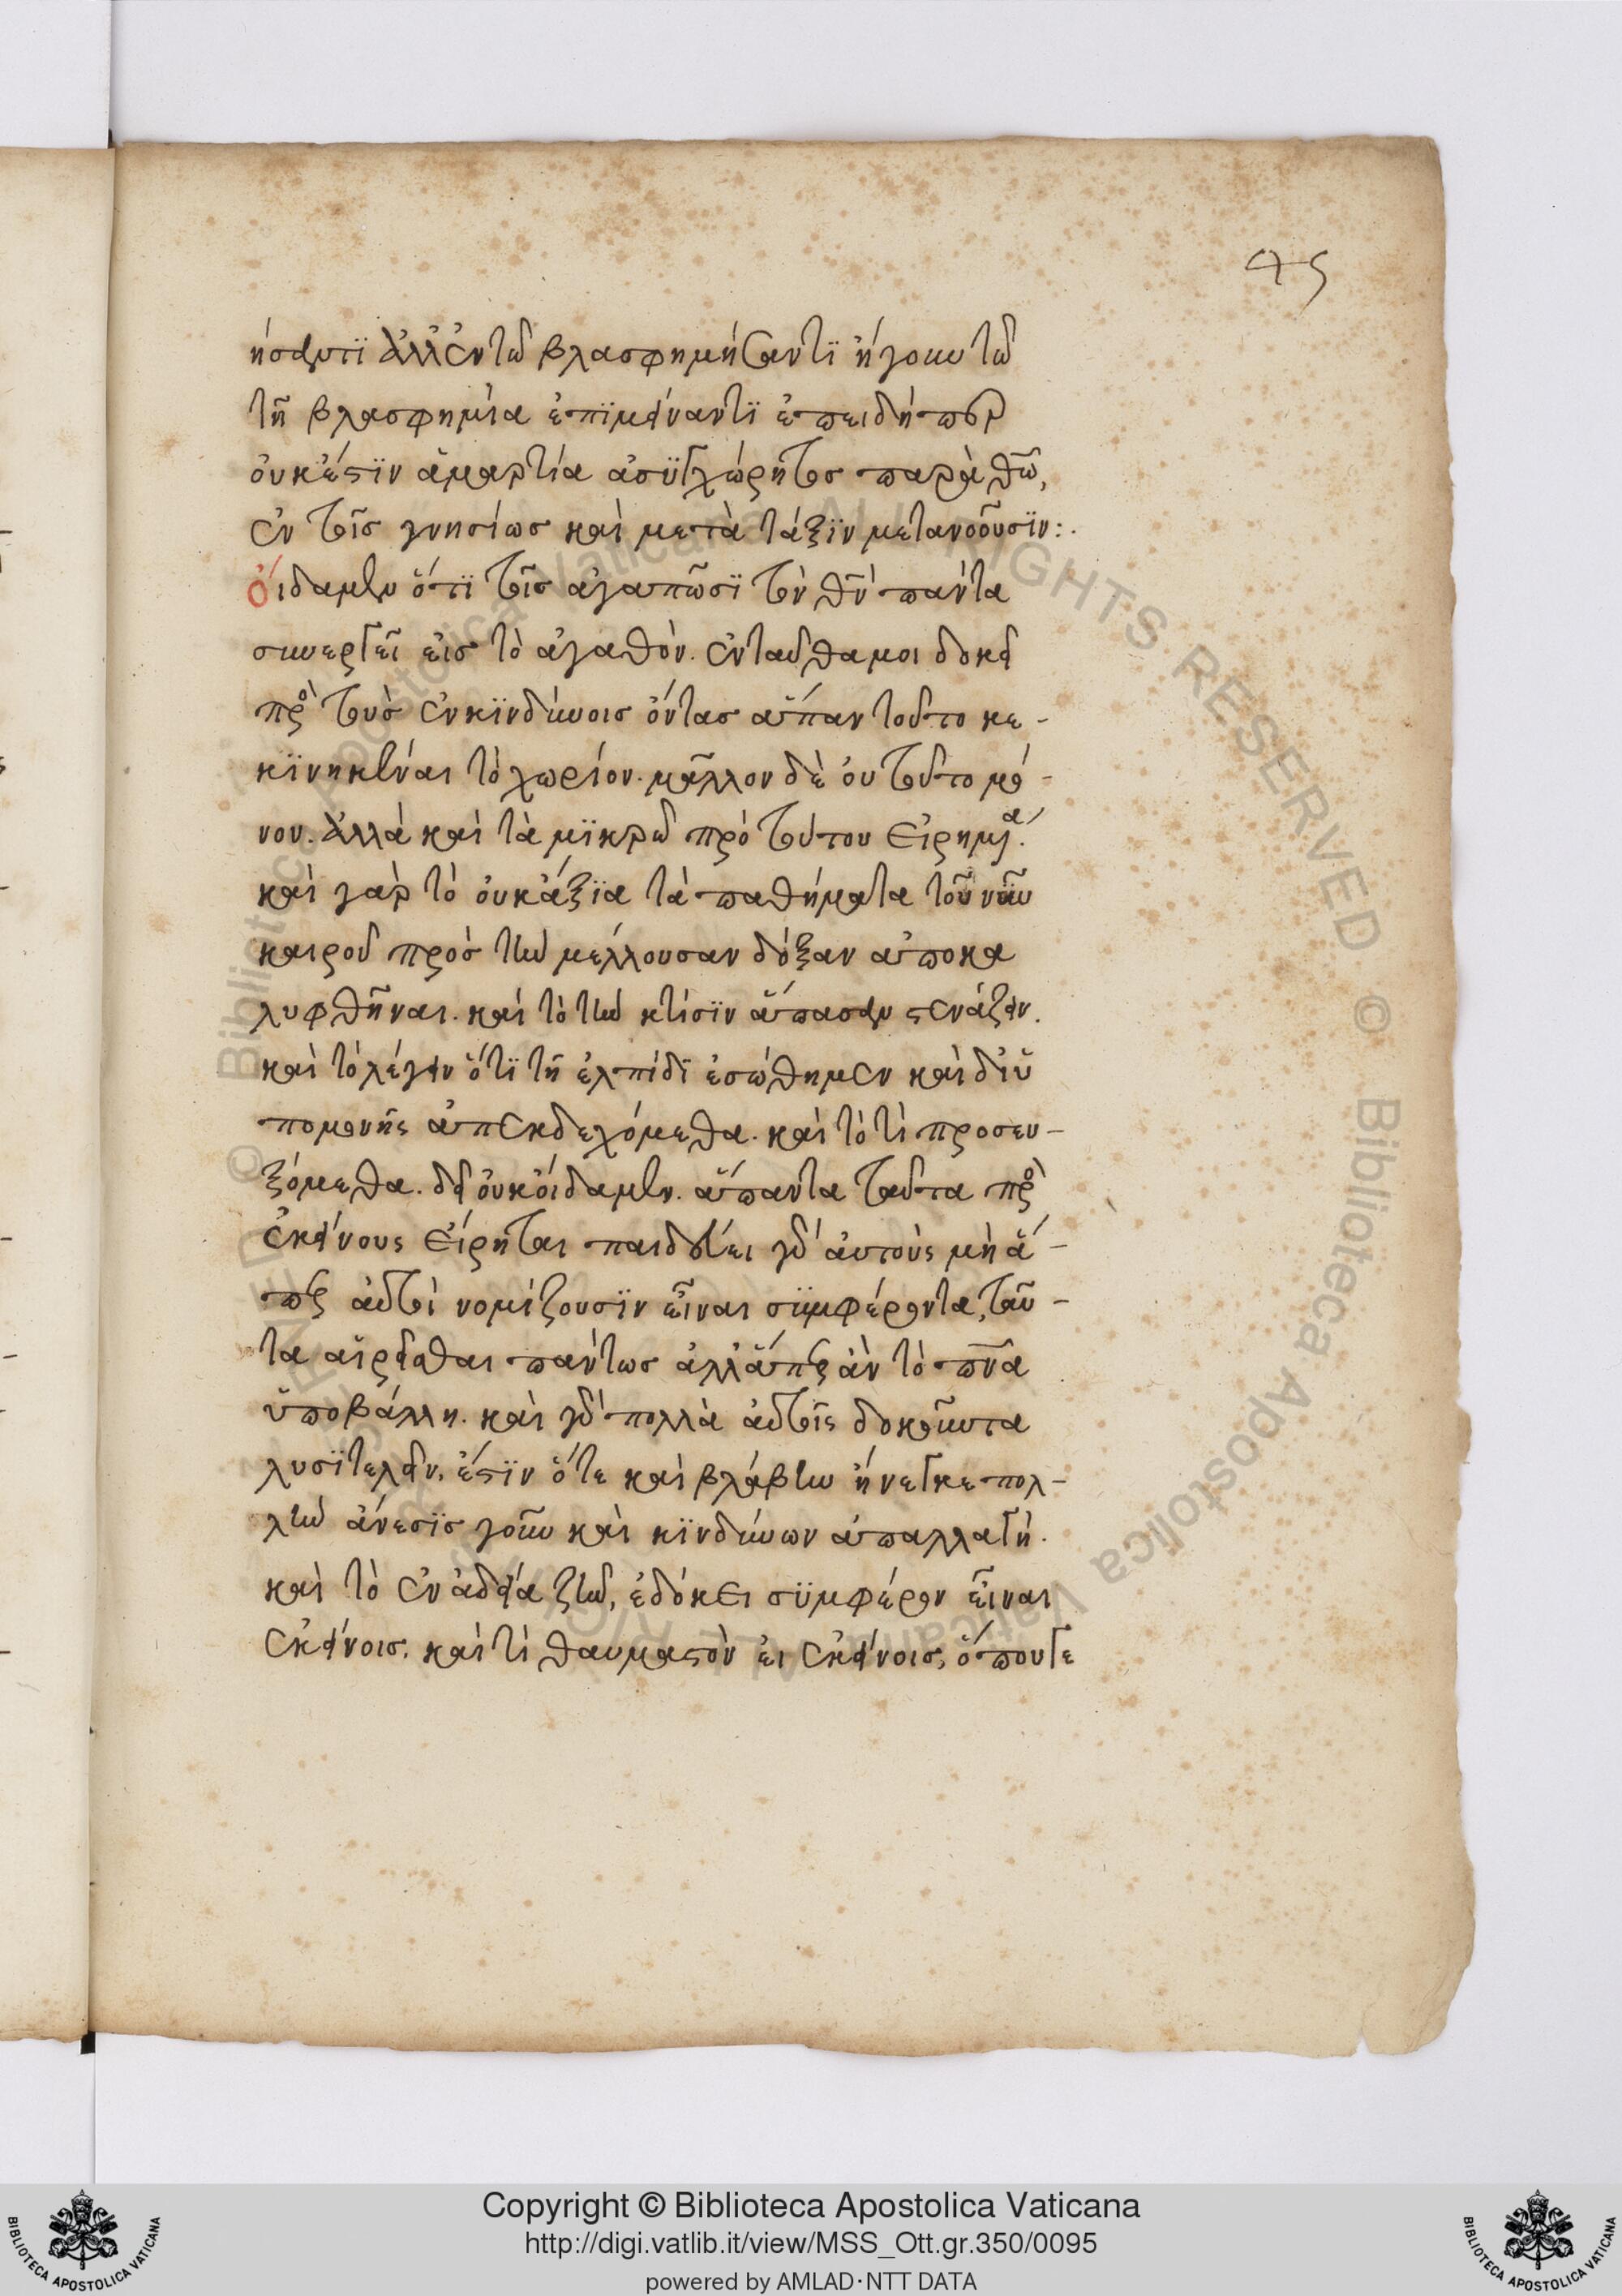 45
ήσαντϊ ἀλλ' ἐν τῶ βλασφημήσαντϊ ἤγουν τῶ
τῆ βλασφημία ἐπϊμείναντϊ ἐπειδήπερ
οὐκ ἔστϊν ἁμαρτία ἀσϋγχώρητος παρὰ θῶ,
ἐν τοῖς γνησίως καὶ μετὰ τάξϊν μετανοοῦσϊν:.
ὀίδαμεν ὅτι τοῖς ἀγαπῶσϊ τὸν θν πάντα
συνεργεῖ εἰς τὸ ἀγαθόν. ἐνταῦθα μοι δοκεῖ
πρὸ τοὺς ἐν κϊνδύνοις ὄντας ἅπαν τοῦτο κε-
κϊνηκέναι τὸ χωρίον. μᾶλλον δὲ οὐ τοῦτο μό-
νον. ἀλλὰ καὶ τὰ μϊκρῶ πρὸ τούτου εἰρημα.
καὶ γὰρ τὸ οὐκ ἄξϊα τὰ παθήματα τοῦ νῦν
καιροῦ πρὸς τὴν μέλλουσαν δόξαν ἀποκα
λυφθῆναι. καὶ τὸ τὴν κτίσϊν ἅπασαν στενάζειν.
καὶ τὸ λέγειν ὅτϊ τῆ ἐλπίδϊ ἐσώθημεν καὶ δι' ὑ
πομονῆς ἀπεκδεχόμεθα. καὶ τὸ τὶ προσευ-
ξόμεθα. δεῖ οὐκ οἴδαμεν. ἅπαντα ταῦτα πρὸ
ἐκείνους εἴρηται παιδεύει γὰρ αὐτοὺς μὴ ἅ-
περ αὐτοὶ νομίζουσϊν εἶναι σϋμφέροντα, ταῦ-
τα αἱρεῖσθαι πάντως ἀλλ' ἅπερ ἂν τὸ πνα
ὑποβάλλη. καὶ γὰρ πολλὰ αὐτοῖς δοκοῦντα
λυσϊτελεῖν, ἔστϊν ὅτε καὶ βλάβην ἤνεγκε πολ-
λὴν ἄνεσϊς γοῦν καὶ κϊνδύνων ἀπαλλαγὴ.
καὶ τὸ ἐν ἀδεία ζῆν, ἐδόκει σϋμφέρον εἶναι
ἐκείνοις. καὶ τὶ θαυμαστὸν εἰ ἐκείνοις, ὅπουγε
Copyright © Biblioteca Apostolica Vaticana
http://digi.vatlib.it/view/MSS_Ott.gr.350/0095
powered by AMLAD·NTT DATA